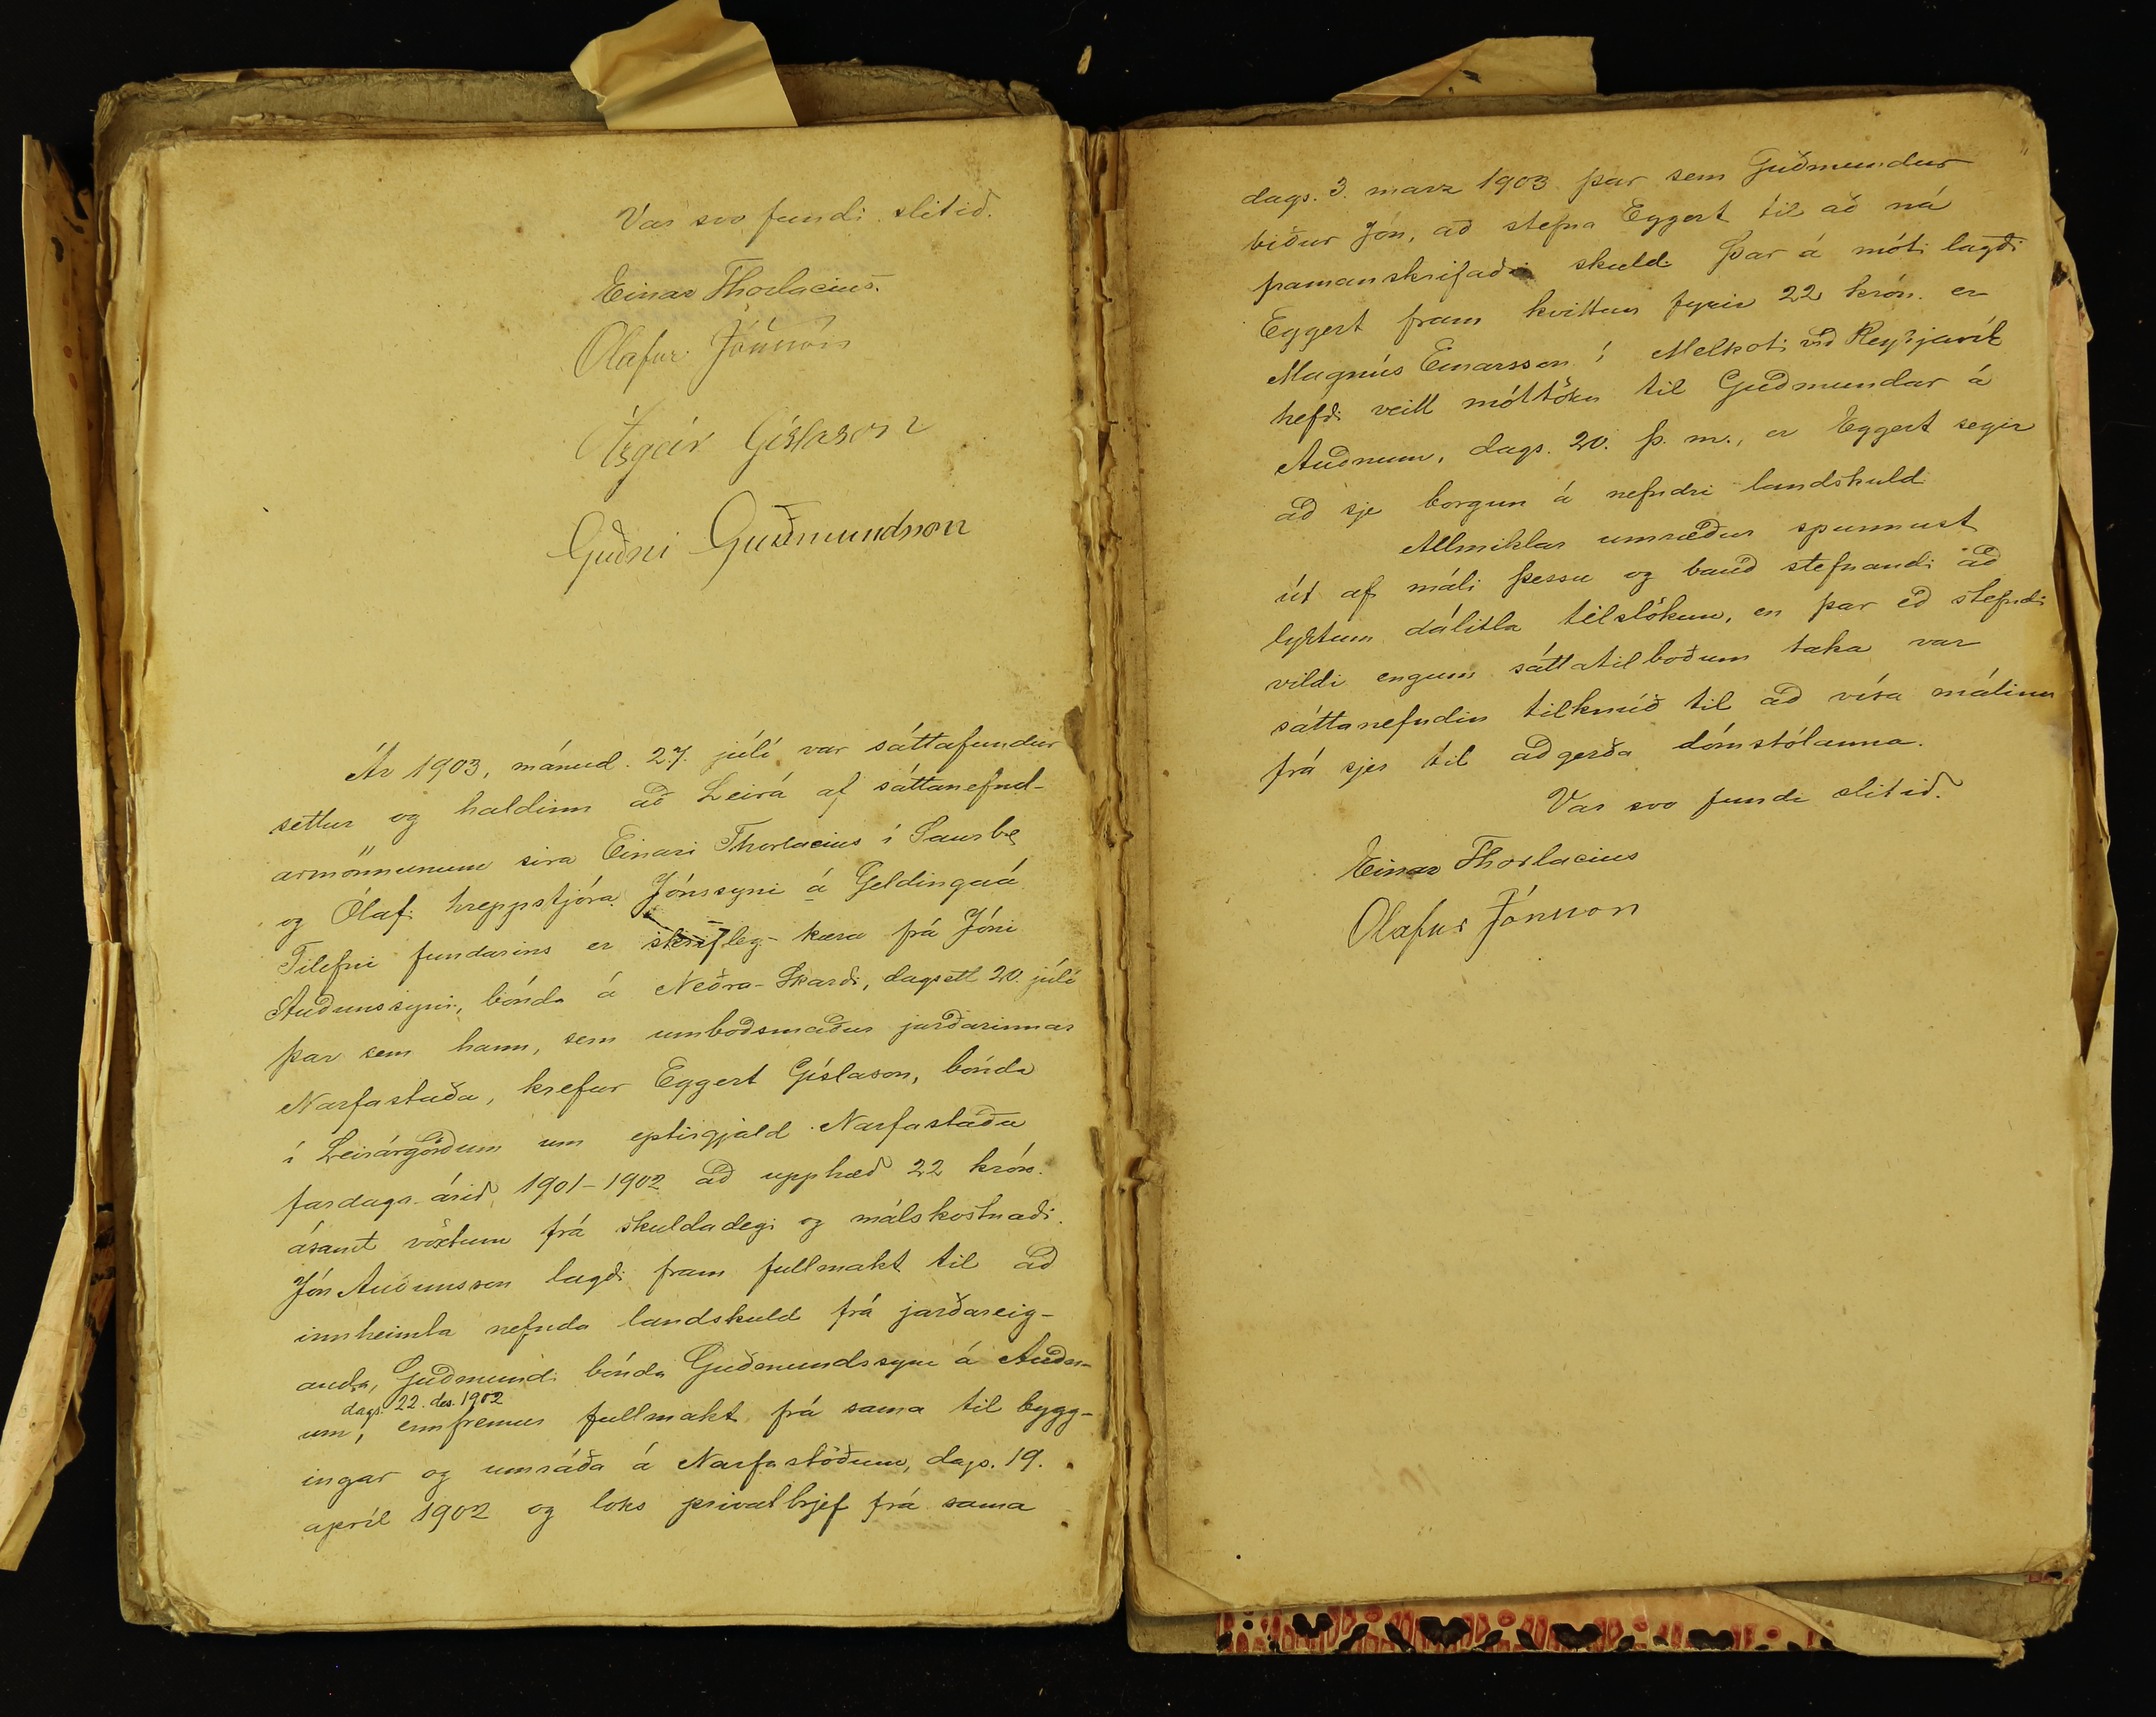 Var svo fundi slitið.
Einar Thorlacius.
Olafur Jónsson
Ásgeir Gíslason
Guðni Guðmundsson
Ár 1903, mánud. 27. júlí var sáttafundur
settur og haldinn að Leirá af sáttanefnd-
armönnunum síra Einari Thorlacius í Saurbæ
og Ólafi hreppstjóra Jónssyni á Geldingaá
Tilefni fundarins er skrifleg kæra frá Jóni
Auðunssyni, bónda á Neðra-Skarði, dagsett 20. júlí
þar sem hann, sem umboðsmaður jarðarinnar
Narfastaða, krefur Eggert Gíslason, bónda
í Leirárgörðum um eptirgjald Narfastaða
fardaga-árið 1901-1902 að upphæð 22 krón.
ásamt vöxtum frá skuldadegi og málskostnaði.
Jón Auðunsson lagði fram fullmakt til að
innheimta nefnda landskuld frá jarðareig-
anda, Guðmundi bónda Guðmundssyni á Auðn-
dags. 22. des. 1902
um, ennfremur fullmakt frá sama til bygg-
ingar og umráða á Narfastöðum, dags. 19.
apríl 1902 og loks privatbrjef frá sama
dags. 3. marz 1903 þar sem Guðmundur
biður Jón, að stefna Eggert til að ná
framanskrifaðri skuld. Þar á móti lagði
Eggert fram kvittun fyrir 22 krón. er
Magnús Einarsson í Melkoti við Reykjavík
hefði veitt móttöku til Guðmundar á
Auðnum, dags. 20. þ. m., er Eggert segir
að sje borgun á nefndri landskuld.
Allmiklar umræður spunnust
út af máli þessu og bauð stefnandi að
lyktum dálitla tilslökun, en þar eð stefndi
vildi engum sáttatilboðum taka var
sáttanefndin tilknúð til að vísa málinu
frá sjer til aðgerða dómstólanna.
Var svo fundi slitið.
Einar Thorlacius
Olafur Jónsson